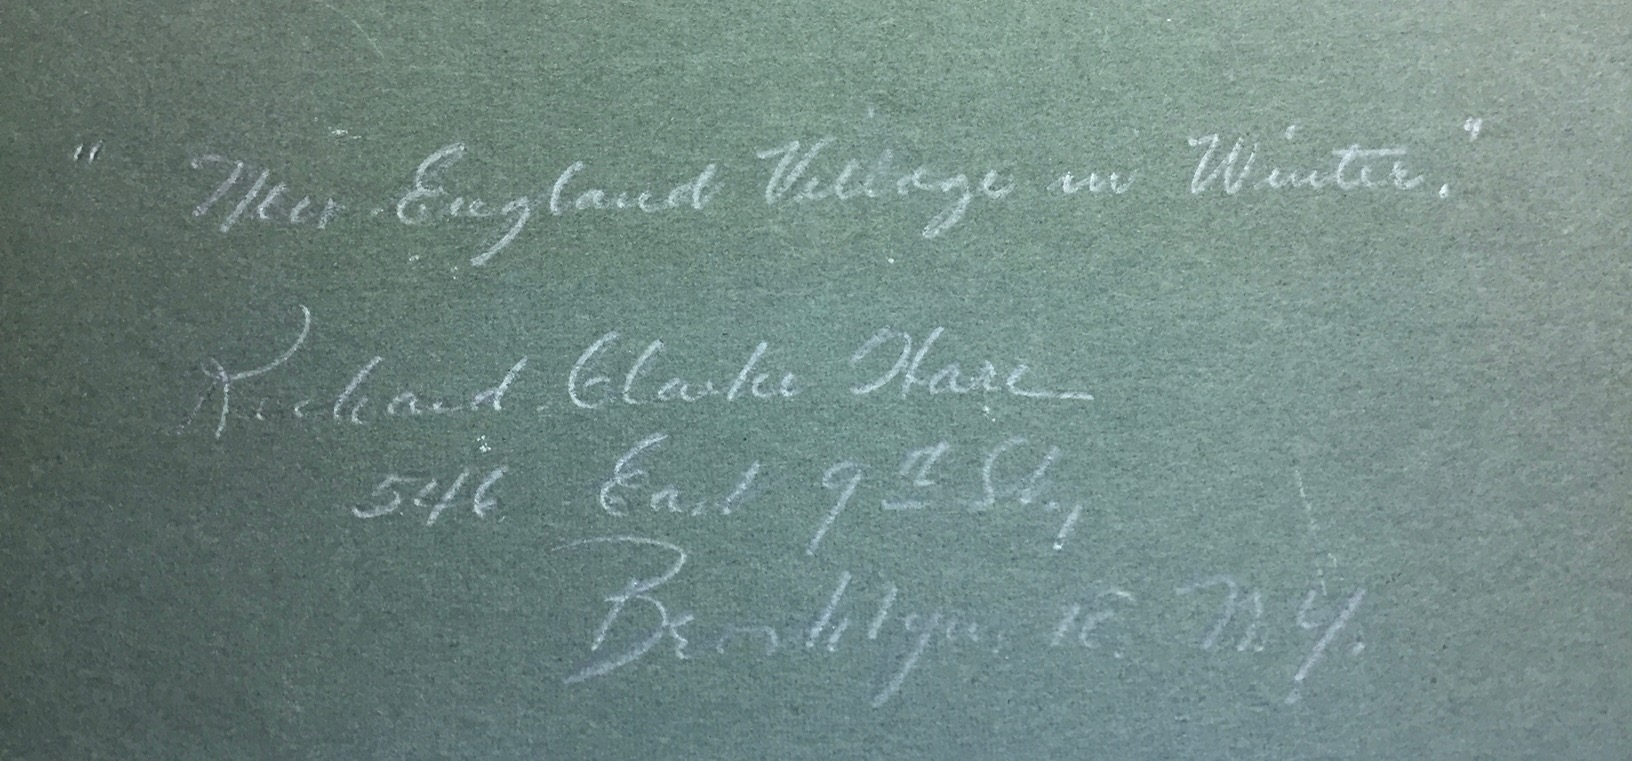 "New England Village in Winter."
Richard Clarke Hare
546 East 9th St.,
Brooklyn, 18, N.Y.